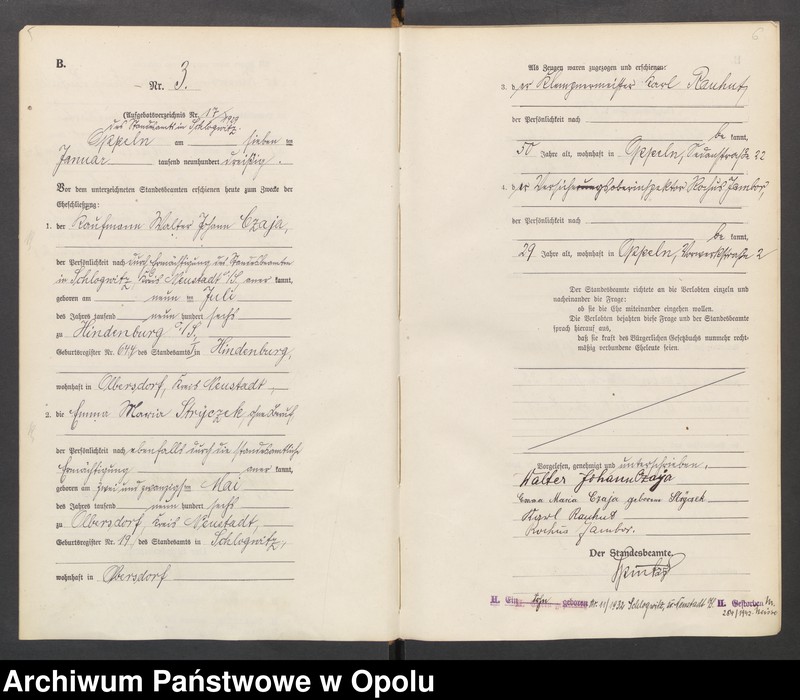 B.
Nr. 3.
(Aufgebotsverzeichnis Nr. 17/1929
des Standesamts in Schlogwitz.
Oppeln am sieben ten
Januar tausend neunhundert dreißig.
Vor dem unterzeichneten Standesbeamten erschienen heute zum Zwecke der
Eheschließung:
1. der Kaufmann Walter Johann Czaja,
der Persönlichkeit nach durch Ermächtigung des Standesbeamten
in Schlogwitz, Kreis Neustadt O/S. aner kannt,
geboren am neun ten Juli
des Jahres tausend neun hundert sechs
zu Hindenburg O/S.,
Geburtsregister Nr. 647 des Standesamts I in Hindenburg,
wohnhaft in Olbersdorf, Kreis Neustadt,
2. die Emma Maria Stryczek, ohne Beruf
der Persönlichkeit nach ebenfalls durch die standesamtliche
Ermächtigung aner kannt,
geboren am zwei und zwanzigsten Mai
des Jahres tausend neun hundert sechs
zu Olbersdorf, Kreis Neustadt,
Geburtsregister Nr. 19 des Standesamts in Schlogwitz,
wohnhaft in Olbersdorf
Als Zeugen waren zugezogen und erschienen:
3. der Klempnermeister Karl Rauhut,
der Persönlichkeit nach
be kannt,
50 Jahre alt, wohnhaft in Oppeln, Sedanstraße 22
4. der Versicherungsoberinspektor Rochus Jambor,
der Persönlichkeit nach
be kannt,
29 Jahre alt, wohnhaft in Oppeln, Vorwerkstraße 2
Der Standesbeamte richtete an die Verlobten einzeln und
nacheinander die Frage:
ob sie die Ehe miteinander eingehen wollen.
Die Verlobten bejahten diese Frage und der Standesbeamte
sprach hierauf aus,
daß sie kraft des Bürgerlichen Gesetzbuchs nunmehr recht-
mäßig verbundene Eheleute seien.
Vorgelesen, genehmigt und unterschrieben.
Walter Johann Czaja
Emma Maria Czaja geborene Stryczek
Karl Rauhut
Rochus Jambor.
Der Standesbeamte.
II. Ein Sohn geboren Nr. 11/1932 Schlogwitz, Kr. Neustadt O/S. II. Gestorben Nr.
Neisse
Archiwum Państwowe w Opolu